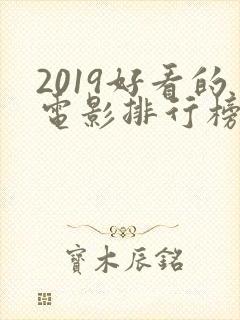 2019好看的
電影排行榜
寶木辰銘